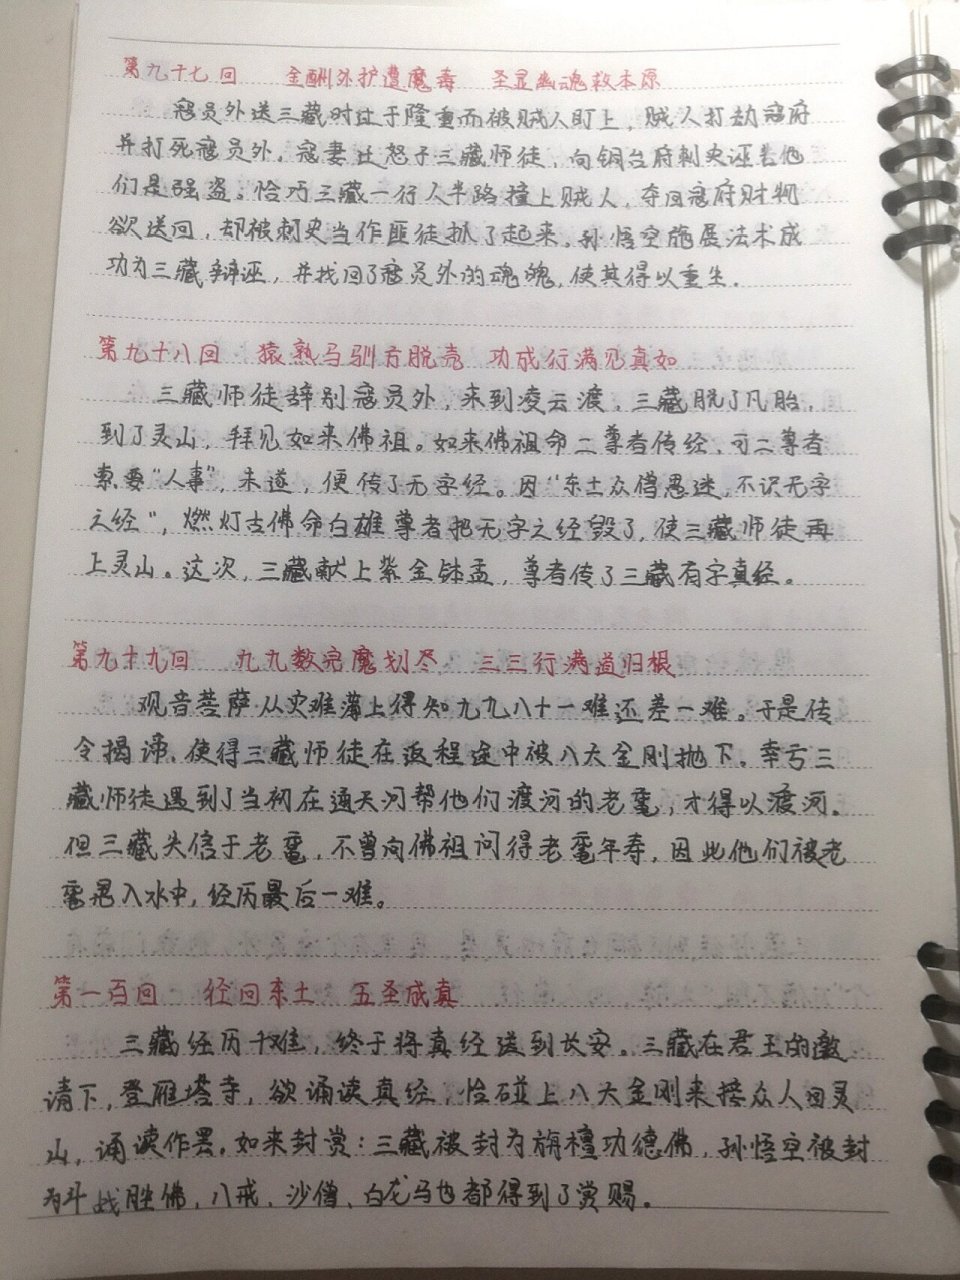 第九十七回 金酬外护遭魔毒 圣显幽魂救本原
寇员外送三藏时过于隆重而被贼人盯上，贼人打劫寇府
并打死寇员外。寇妻迁怒于三藏师徒，向铜台府刺史诬告他
们是强盗。恰巧三藏一行人半路撞上贼人，夺回寇府财物
欲送回，却被刺史当作匪徒抓了起来。孙悟空施展法术成
功为三藏辩诬，并找回了寇员外的魂魄，使其得以重生。
第九十八回 猿熟马驯方脱壳 功成行满见真如
三藏师徒辞别寇员外，来到凌云渡，三藏脱了凡胎，
到了灵山，拜见如来佛祖。如来佛祖命二尊者传经，可二尊者
索要“人事”，未遂，便传了无字经。因“东土众僧愚迷，不识无字
之经”，燃灯古佛命白雄尊者把无字之经毁了，使三藏师徒再
上灵山。这次，三藏献上紫金钵盂，尊者传了三藏有字真经。
第九十九回 九九数完魔划尽 三三行满道归根
观音菩萨从灾难簿上得知九九八十一难还差一难。于是传
令揭谛，使得三藏师徒在返程途中被八大金刚抛下。幸亏三
藏师徒遇到了当初在通天河帮他们渡河的老鼋，才得以渡河。
但三藏失信于老鼋，不曾向佛祖问得老鼋年寿，因此他们被老
鼋晃入水中，经历最后一难。
第一百回 径回东土 五圣成真
三藏经历千难，终于将真经送到长安。三藏在君王的邀
请下，登雁塔寺，欲诵读真经，恰碰上八大金刚来接众人回灵
山，诵读作罢。如来封赏：三藏被封为旃檀功德佛，孙悟空被封
为斗战胜佛，八戒、沙僧、白龙马也都得到了赏赐。